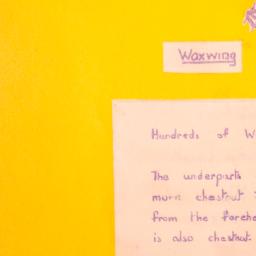 Waxwing
Hundreds of W
The underparts
more chestnut
from the foreh
is also chestnut.